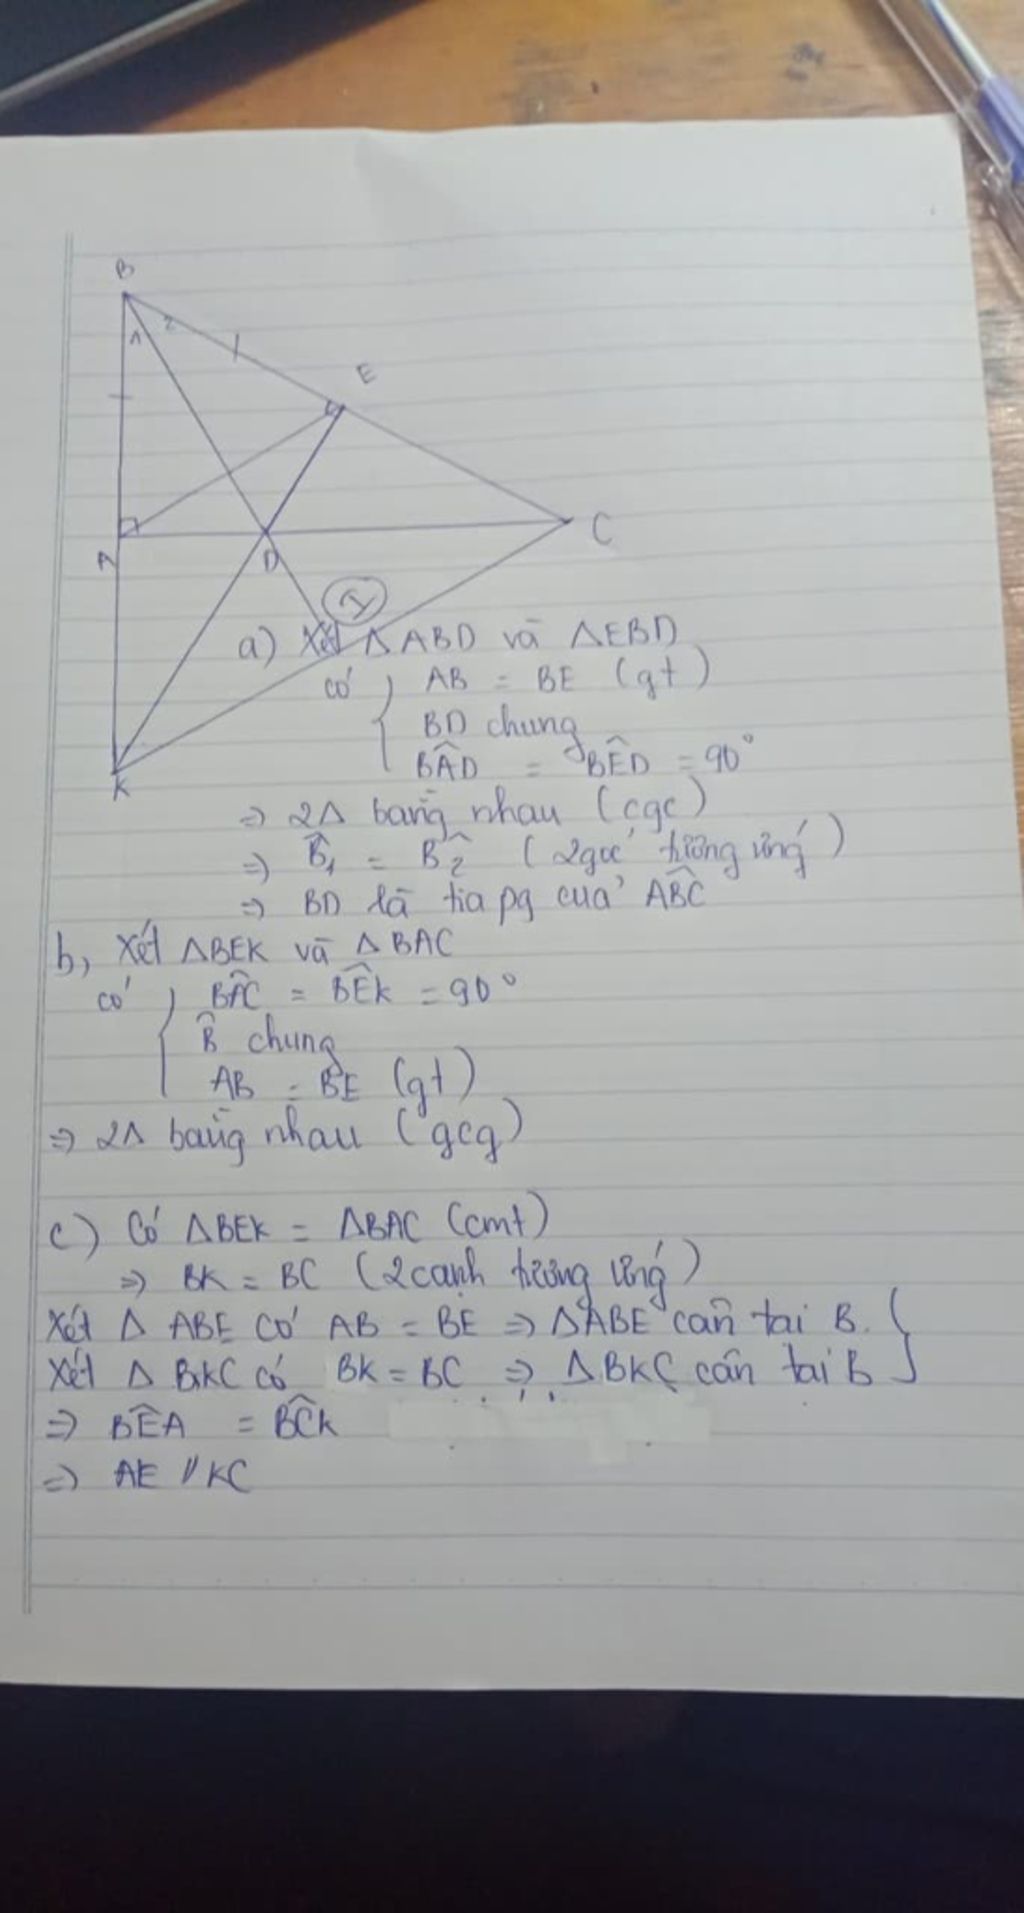 B
1 2
E
A
D
C
K
I
a) Xét ΔABD và ΔEBD
có { AB = BE (gt)
BD chung
BÂD = BÊD = 90°
=> 2Δ bằng nhau (cgc)
=> B̂₁ = B̂₂ (2 góc tương ứng)
=> BD là tia pg của AB̂C
b, Xét ΔBEK và ΔBAC
có { BÂC = BÊK = 90°
B̂ chung
AB = BE (gt)
=> 2Δ bằng nhau (gcg)
c) Có ΔBEK = ΔBAC (cmt)
=> BK = BC (2 cạnh tương ứng)
Xét Δ ABE có AB = BE => ΔABE cân tại B. }
Xét Δ BKC có BK = BC => ΔBKC cân tại B
=> BÊA = BĈK
=> AE // KC